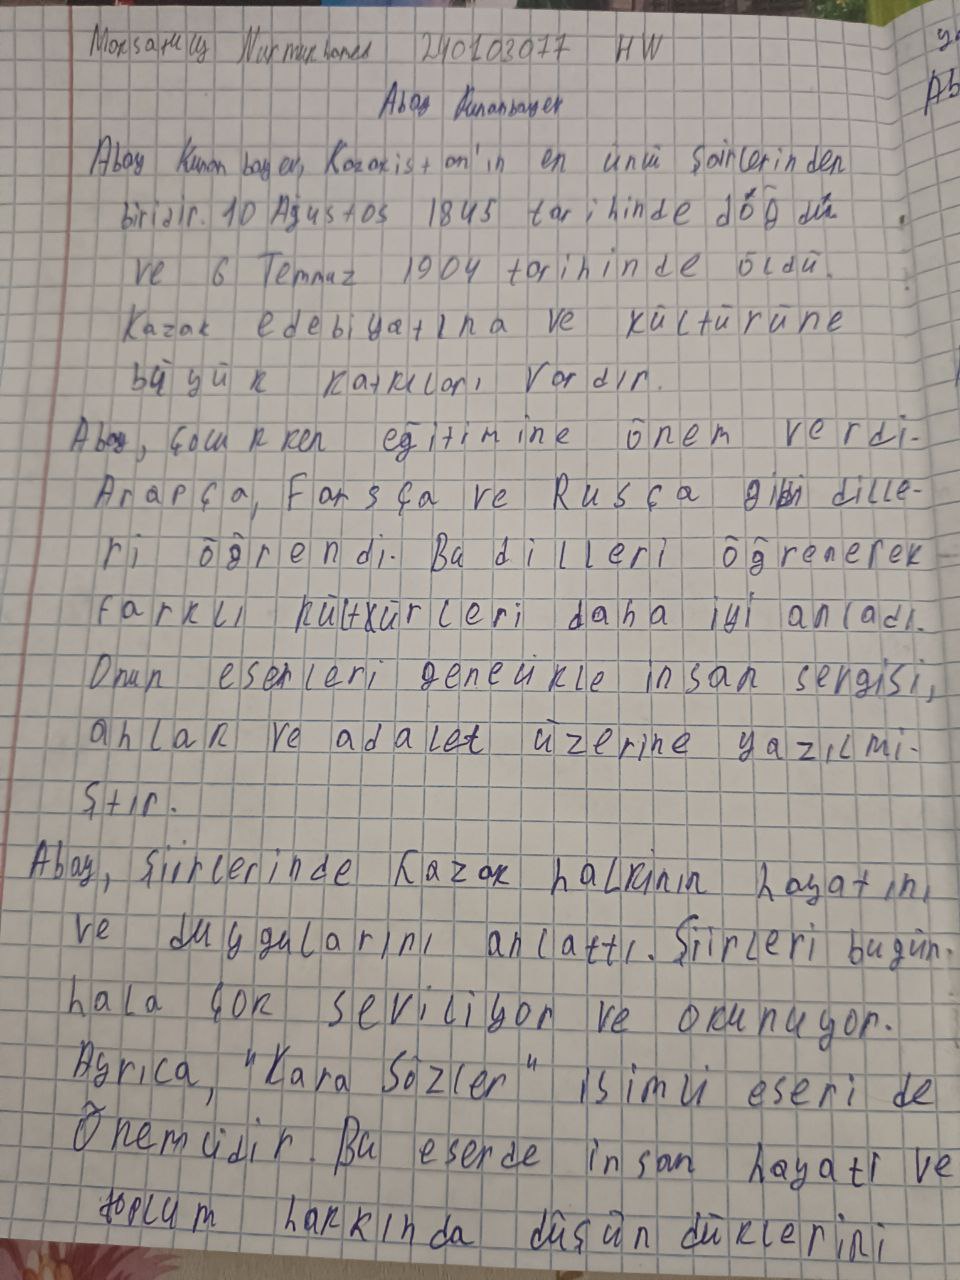 240103077 HW
Abay Kunanbayev
Abay Kunanbayev, Kazakistan'ın en ünlü şairlerinden
biridir. 10 Ağustos 1845 tarihinde döğdü
ve 6 Temmuz 1904 tarihinde öldü.
Kazak edebiyatına ve kültürüne
büyük katkıları vardır.
Abay, çocukken eğitimine önem verdi.
Arapça, Farsça ve Rusça gibi dille-
ri öğrendi. Bu dilleri öğrenerek
farklı kültürleri daha iyi anladı.
Onun eserleri genellikle insan sergisi,
ahlak ve adalet üzerine yazılmi-
ştır.
Abay, şiirlerinde Kazak halkinın hayatını
ve duygularını anlattı. Şiirleri bugün
hala çok seviliyor ve okunuyor.
Ayrıca, "Kara Sözler" isimli eseri de
Önemlidir. Bu eserde insan hayatı ve
toplum hakkında düşündüklerini
ya
Ab